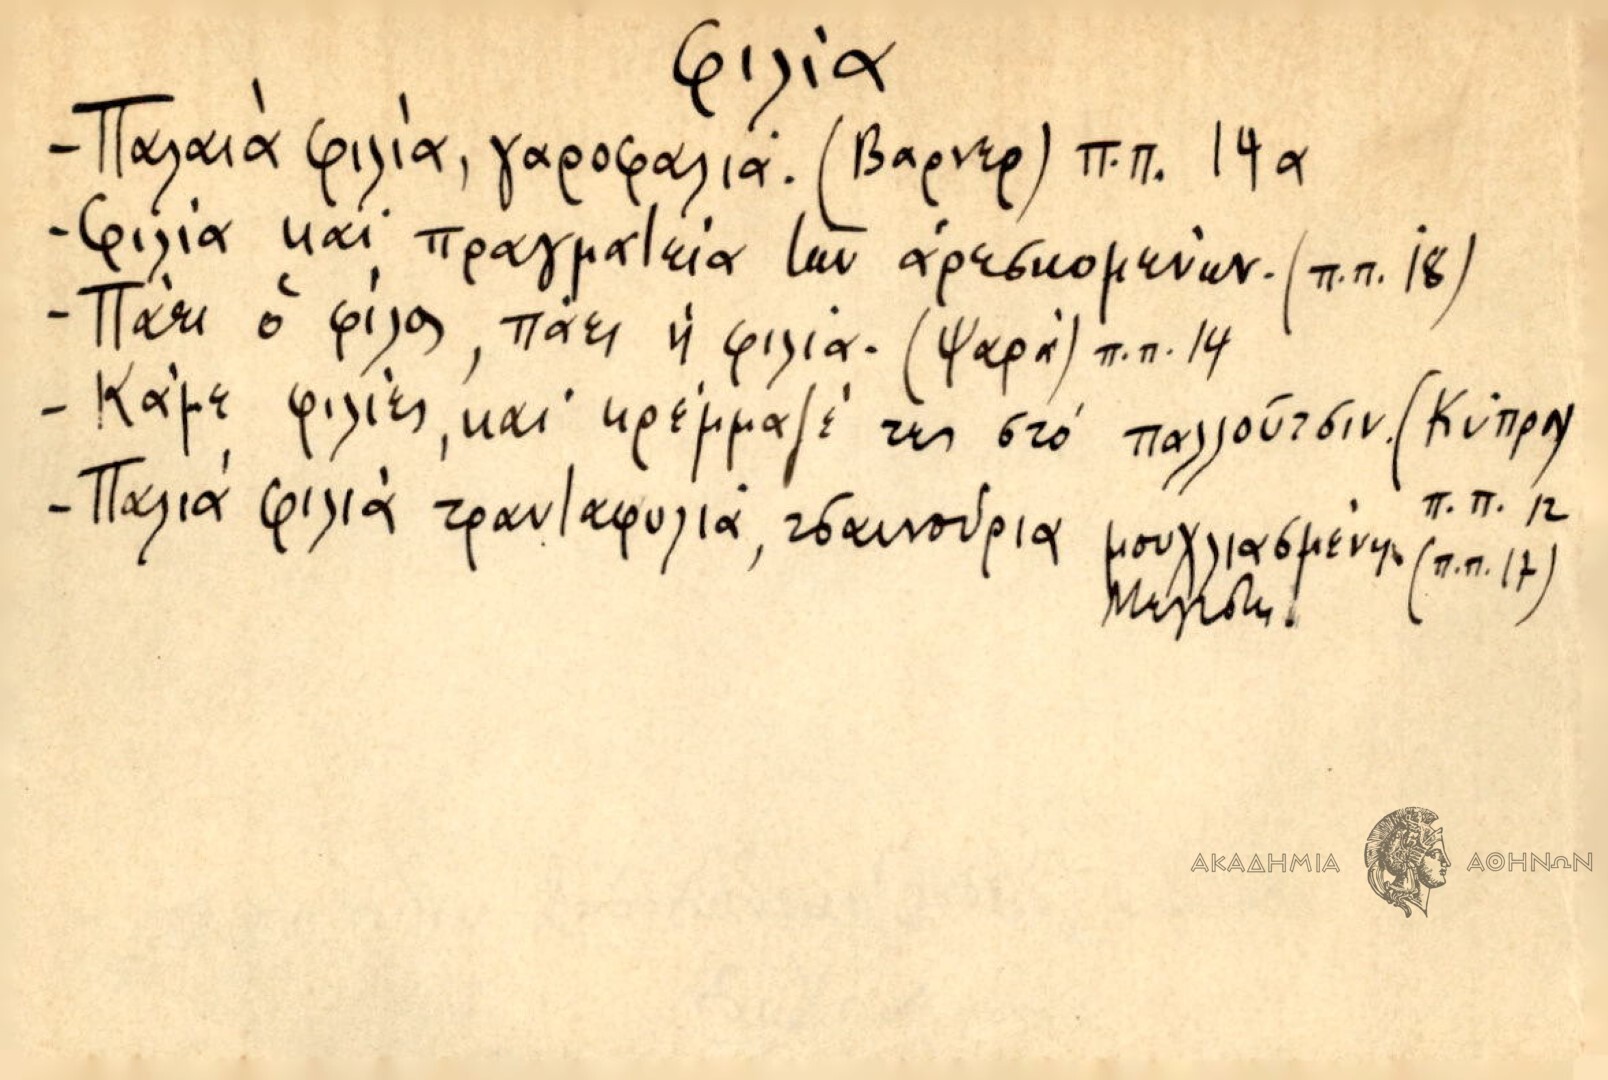 φιλία
- Παλαιὰ φιλία, γαροφαλιά. (Βάρνερ) π.π. 14α
- Φιλία καὶ πραγματεία τῶν ἀρεσκομένων. (π.π. 18)
- Πάει ὁ φίλος, πάει ἡ φιλία. (Ψαρά) π.π. 14
- Κάμε φιλίες, καὶ κρέμμασέ τες στό παλλούτσιν. (Κύπρος
π.π. 12
- Παλιά φιλιά τρανταφυλιά, τσαινούρια μουχλιασμένη. (π.π. 17)
Μεγίστη.
ΑΚΑΔΗΜΙΑ ΑΘΗΝΩΝ